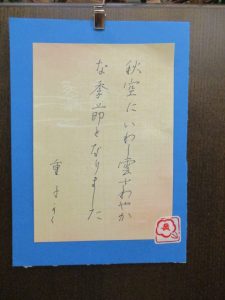 秋空にいわし雲さわやか
な季節となりました
重子